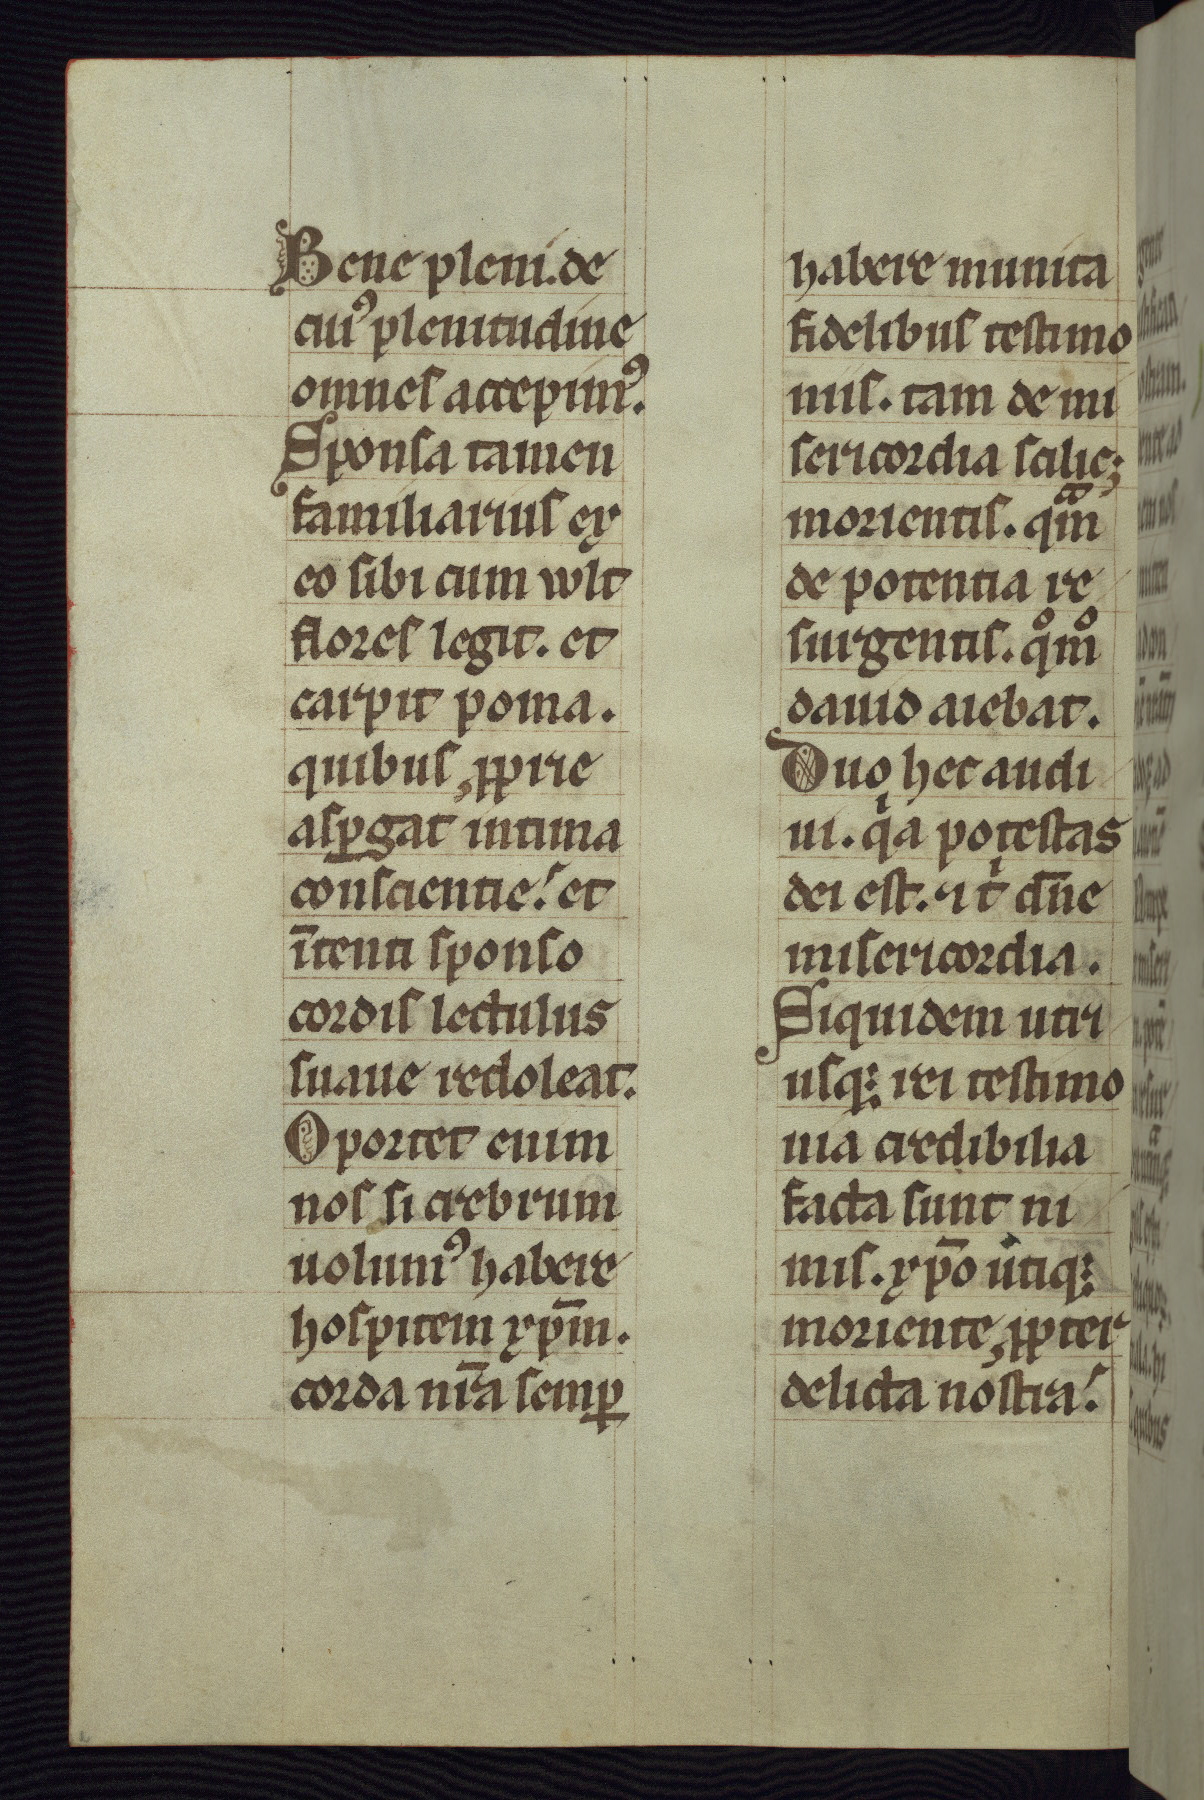 Bene pleni. de
cui᷒ plenitudine
omnes accepim᷒.
Sponsa tamen
familiarius ex
eo sibi cum wlt
flores legit. et
carpit poma.
quibus ꝓprie
asꝑgat intima
conscientie! et
ītenti sponso
cordis lectulus
suaue redoleat.
Oportet enim
nos si crebrum
uolum᷒ habere
hospitem xp̄m.
corda nr̄a semꝑ
habere munita
fidelibus testimo
niis. tam de mi
sericordia scilic;
morientis. qᵃm
de potentia re
surgentis. qͦmͦ
dauid aiebat.
Duo hec audi
ui. qͥa potestas
dei est. ⁊ tͥ dn̄e
misericordia.
Siquidem utri
usq; rei testimo
nia credibilia
facta sunt ni
mis. xp̄o utiq;
moriente ꝓpter
delicta nostra!